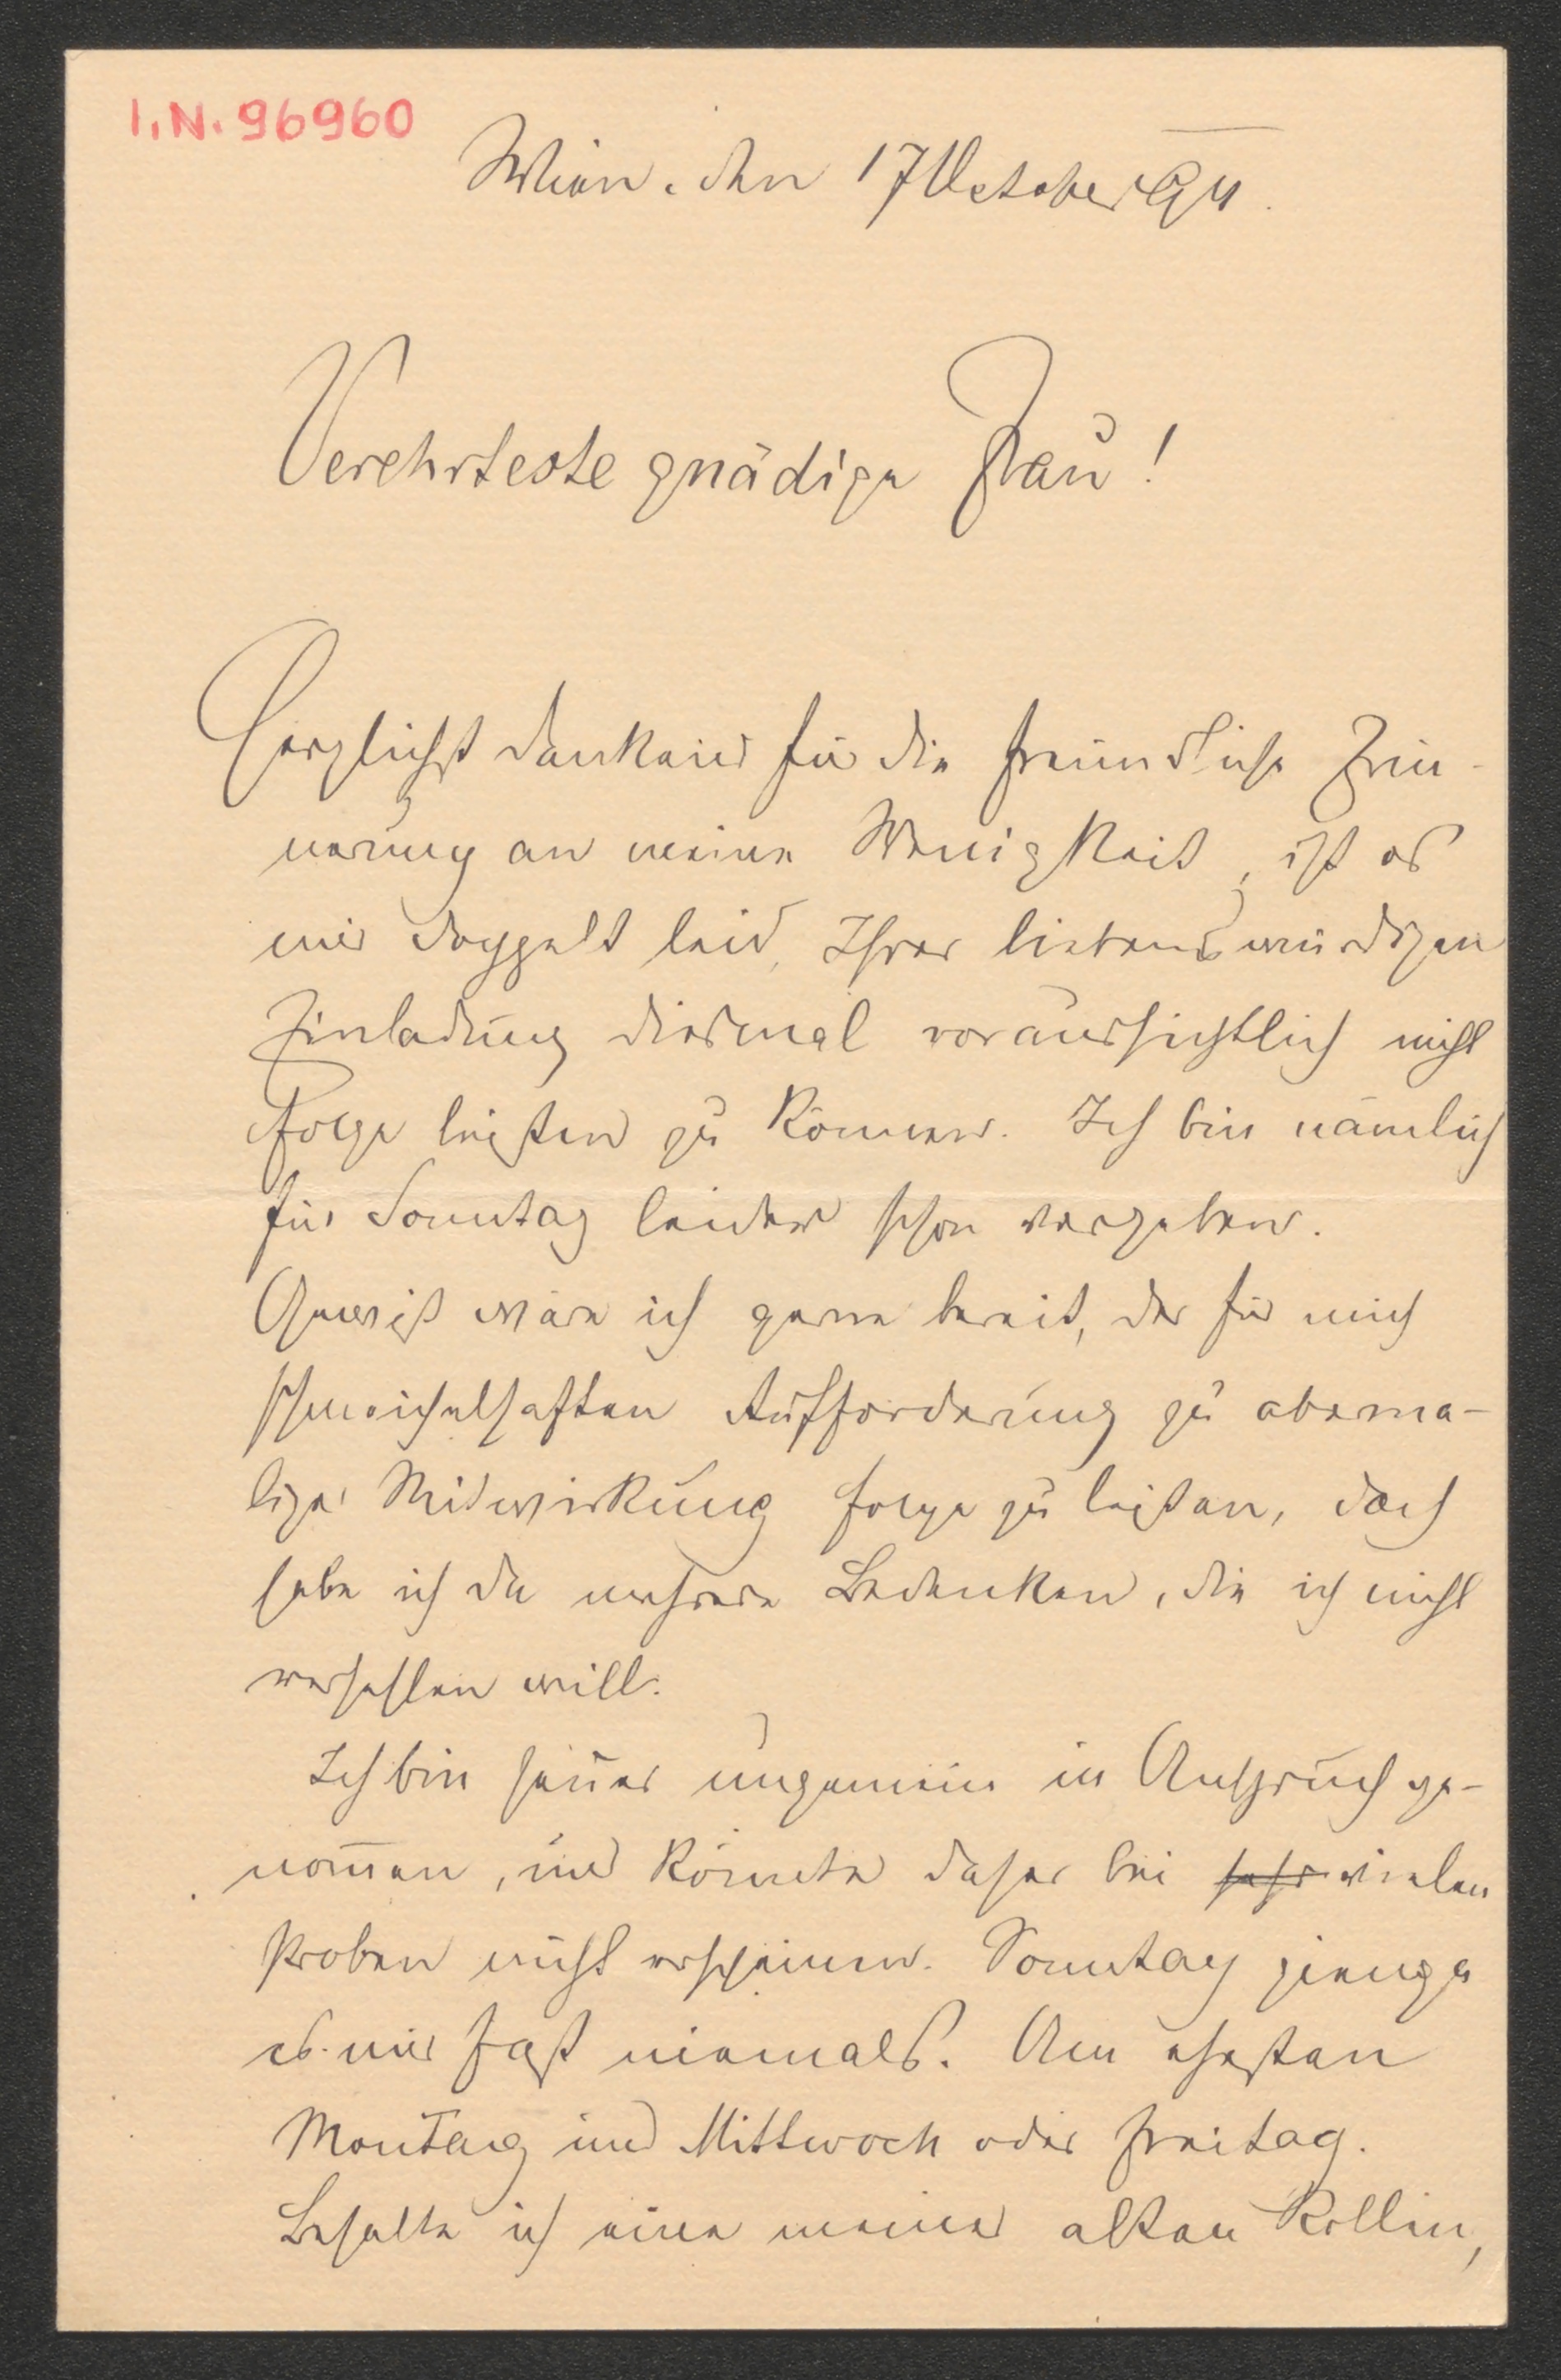 I.N. 96960
Wien, den 17 October 94.
Verehrteste gnädige Frau!
Herzlichst dankend für die freundliche Erin-
nerung an meine Wenigkeit, ist es
mir doppelt leid, Ihrer liebenswürdigen
Einladung diesmal voraussichtlich nicht
Folge leisten zu können. Ich bin nämlich
für Sonntag leider schon vergeben.
Gewiß wäre ich gerne bereit, der für mich
schmeichelhaften Aufforderung zu aberma-
liger Mitwirkung folge zu leisten, doch
habe ich da mehrere Bedenken, die ich nicht
verhehlen will.
Ich bin heuer ungemein in Anspruch ge-
nom̄en, und könnte daher bei sehr vielen
Proben nicht erscheinen. Sonntag gienge
es mir fast niemals. Am ehesten
Montag und Mittwoch oder Freitag.
Behalte ich eine meiner alten Rollen,